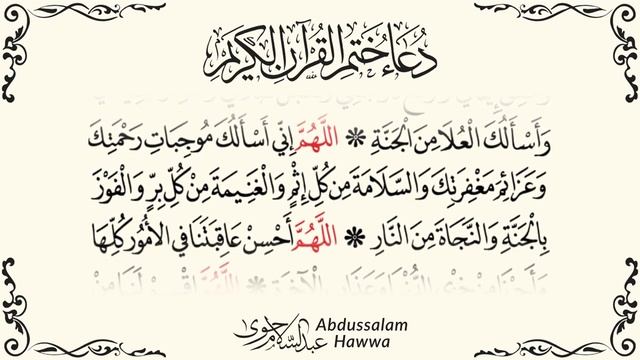 دُعَاءُ خَتْمِ الْقُرْآنِ الْكَرِيمِ
وَأَسْأَلُكَ الْعُلَا مِنَ الْجَنَّةِ ❋ اللَّهُمَّ إِنِّي أَسْأَلُكَ مُوجِبَاتِ رَحْمَتِكَ
وَعَزَائِمَ مَغْفِرَتِكَ وَالسَّلَامَةَ مِنْ كُلِّ إِثْمٍ وَالْغَنِيمَةَ مِنْ كُلِّ بِرٍّ وَالْفَوْزَ
بِالْجَنَّةِ وَالنَّجَاةَ مِنَ النَّارِ ❋ اللَّهُمَّ أَحْسِنْ عَاقِبَتَنَا فِي الْأُمُورِ كُلِّهَا
وَأَجِرْنَا مِنْ خِزْيِ الدُّنْيَا وَعَذَابِ الْآخِرَةِ ❋ اللَّهُمَّ اقْسِمْ لَنَا مِنْ
عبدالسلام حوى
Abdussalam
Hawwa